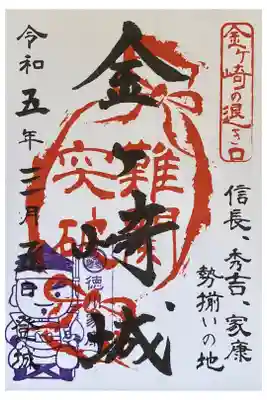 金ヶ崎の退き口
信長、秀吉、家康
勢揃いの地
金ヶ崎城
難関
突破
徳川家康
令和五年三月五日登城